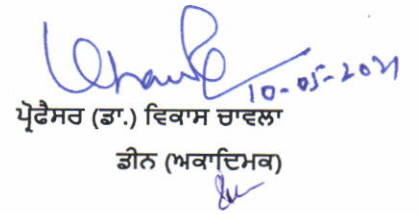 10-05-2021
ਪ੍ਰੋਫੈਸਰ (ਡਾ.) ਵਿਕਾਸ ਚਾਵਲਾ
ਡੀਨ (ਅਕਾਦਿਮਕ)